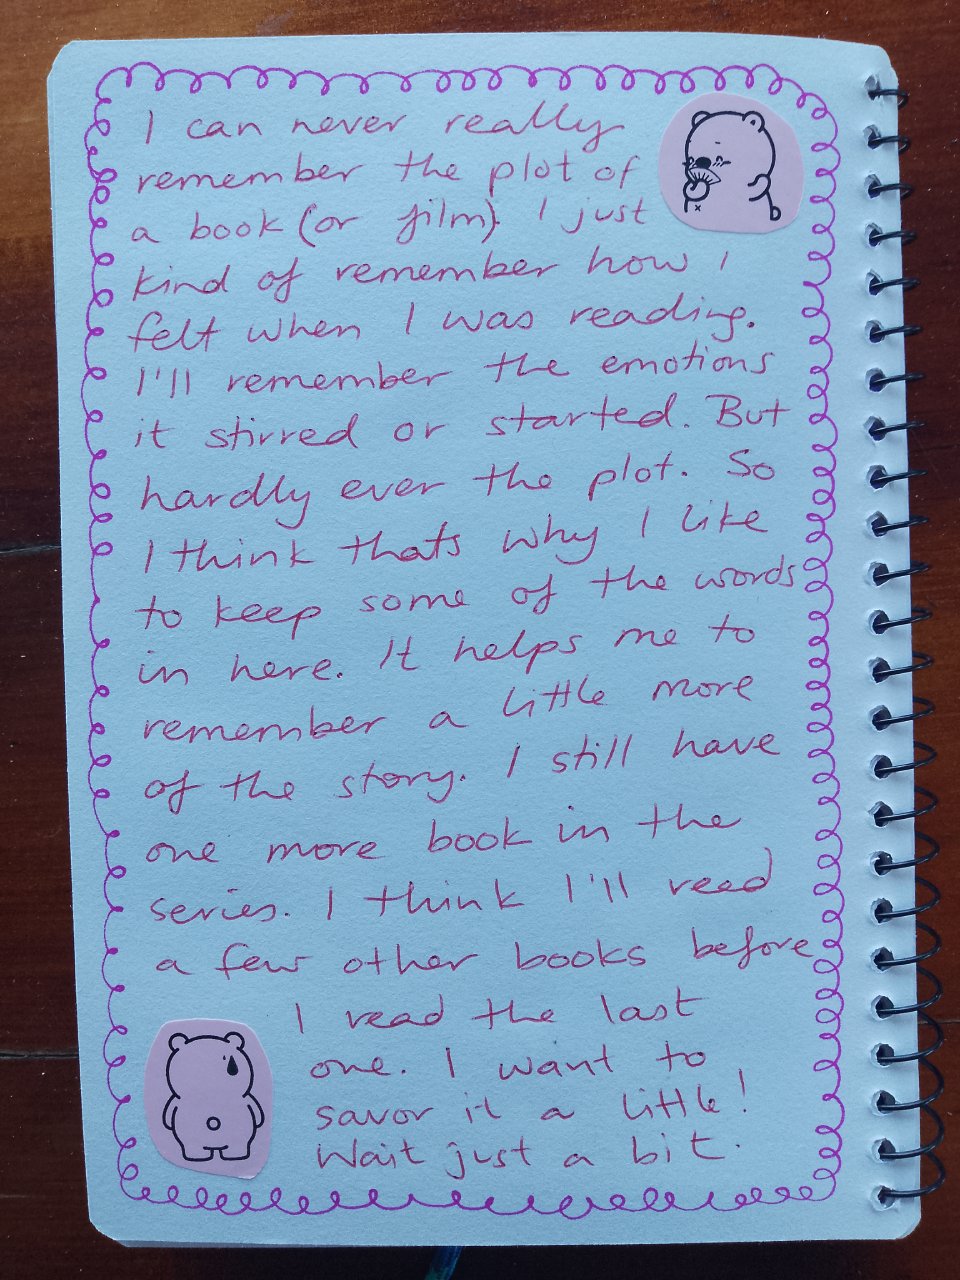 I can never really
remember the plot of
a book (or film). I just
kind of remember how I
felt when I was reading.
I'll remember the emotions
it stirred or started. But
hardly ever the plot. So
I think thats why I like
to keep some of the words
in here. It helps me to
remember a little more
of the story. I still have
one more book in the
series. I think I'll read
a few other books before
I read the last
one. I want to
savor it a little!
Wait just a bit.